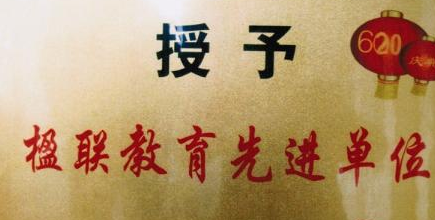 授予
600
楹联教育先进单位